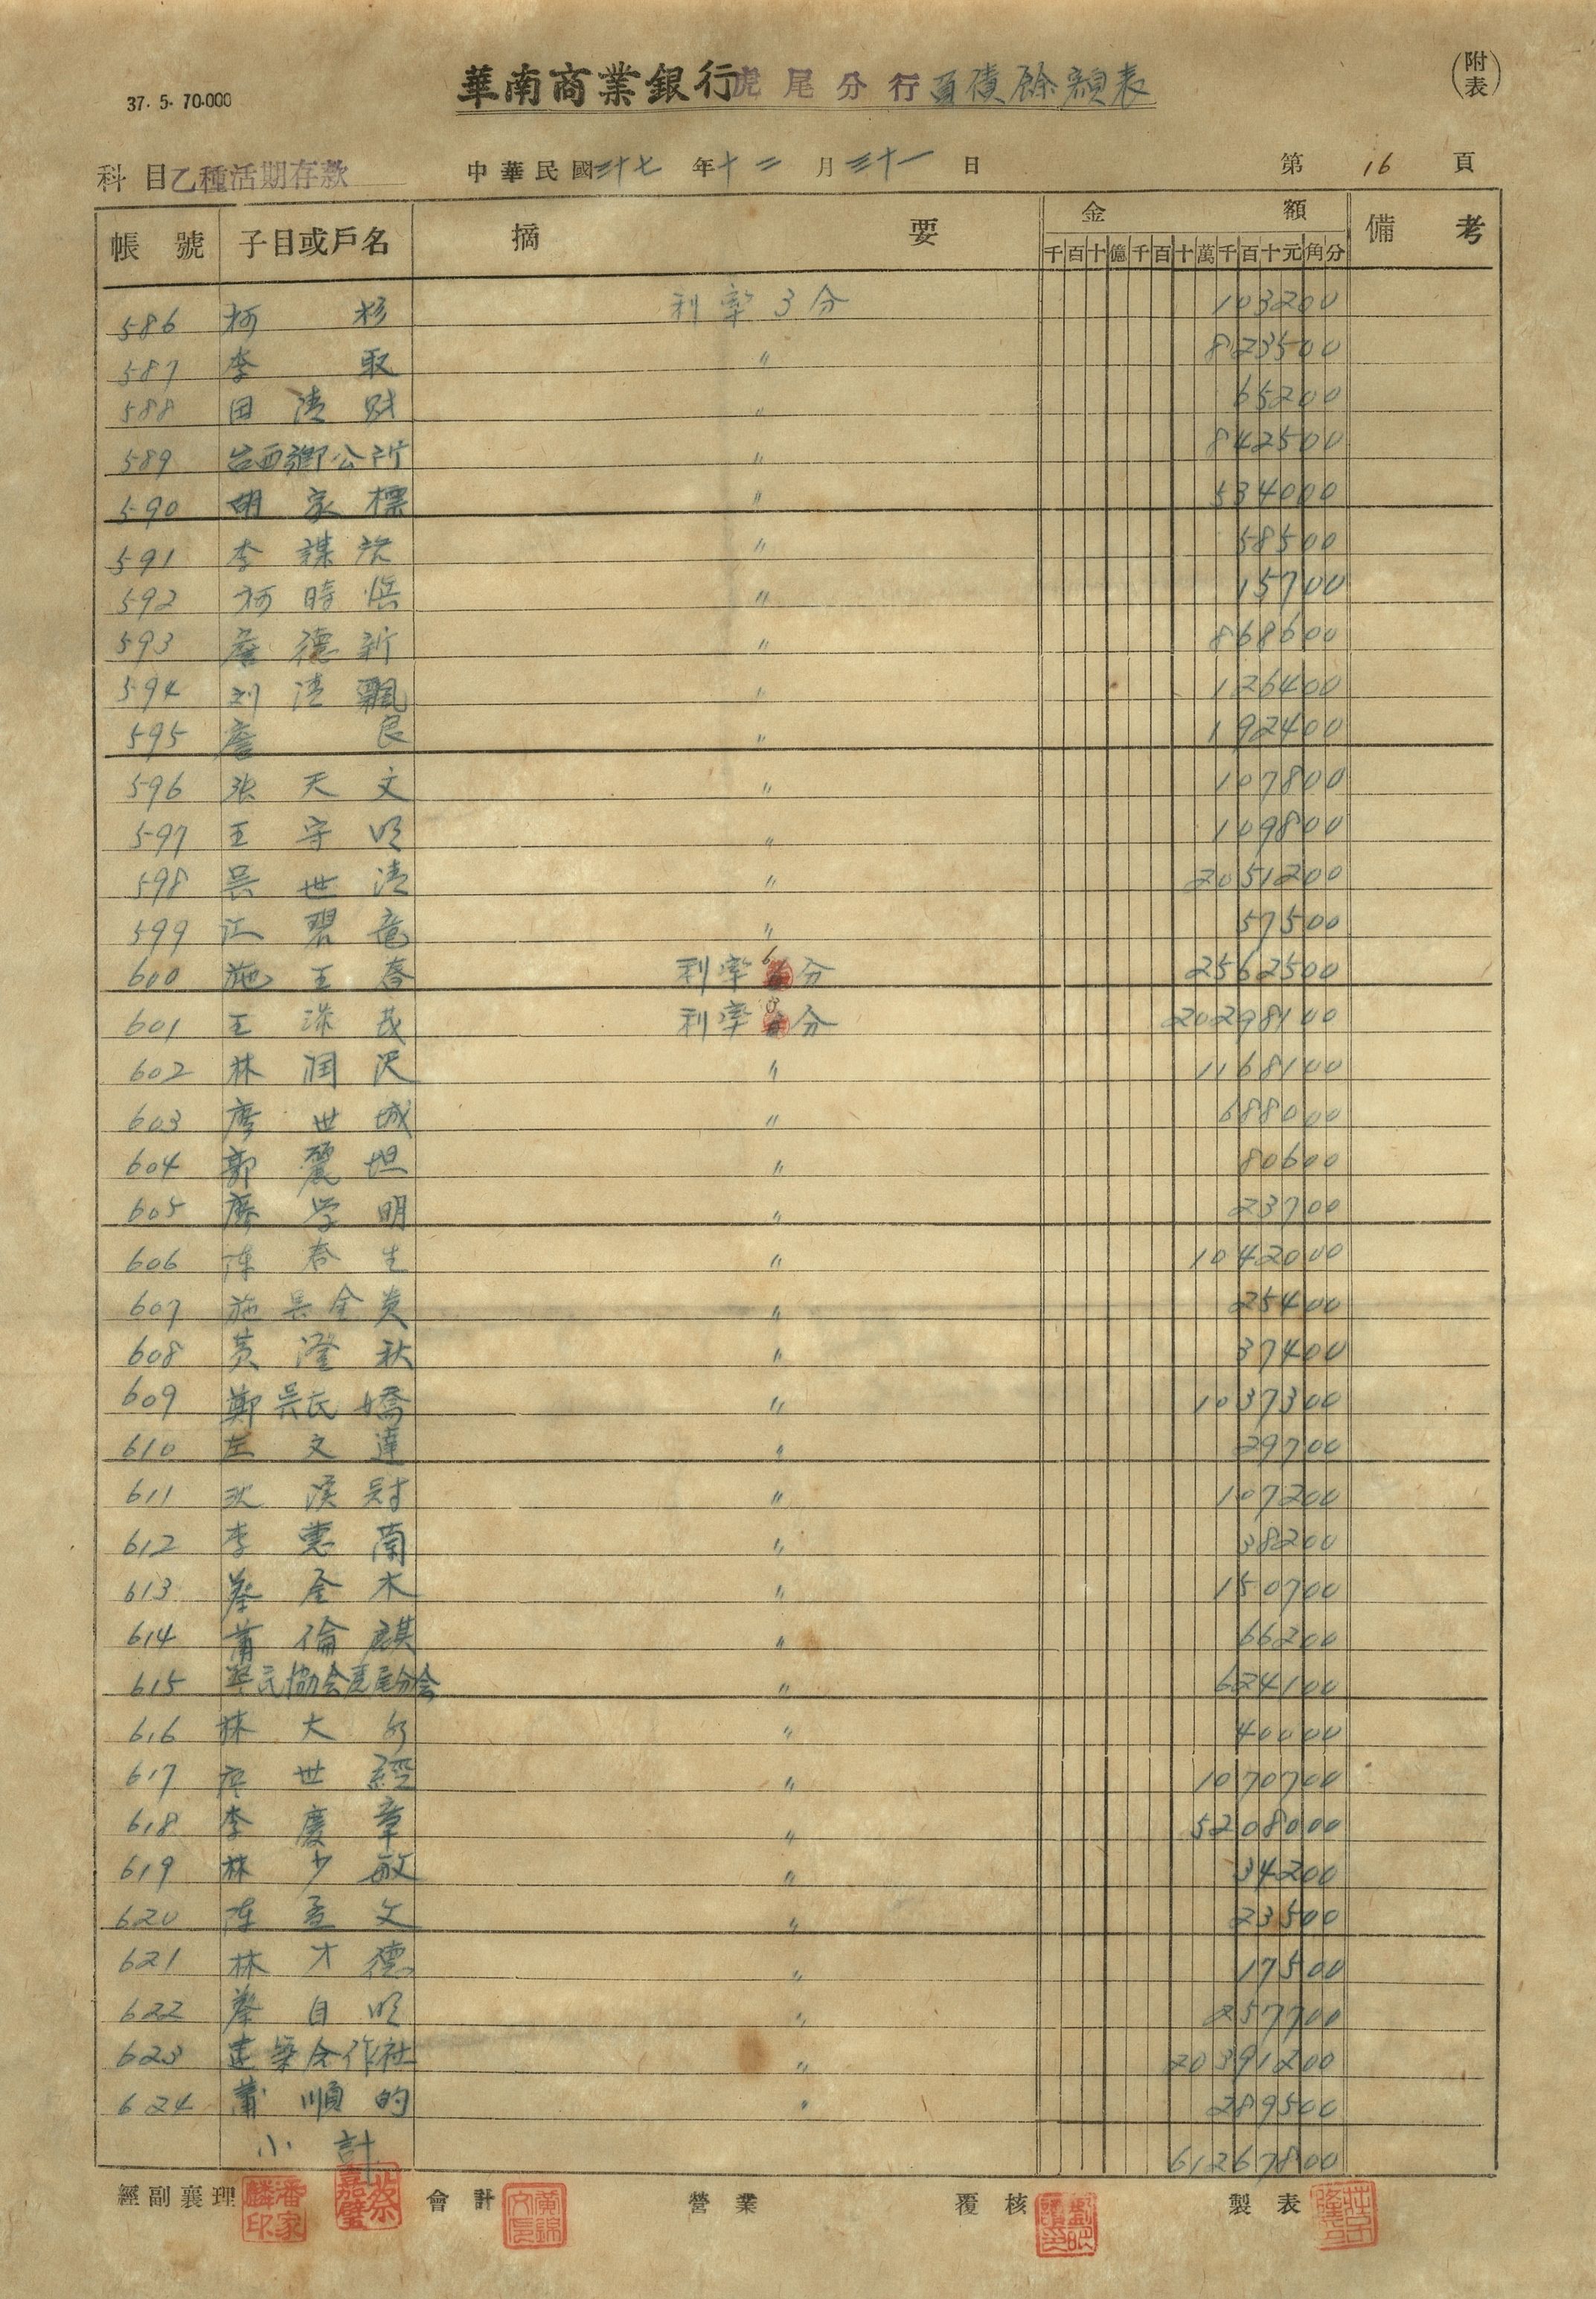 37. 5. 70.000
華南商業銀行虎尾分行負債餘額表
(附表)
科目乙種活期存款 中華民國三十七年十二月三十一日 第16頁
帳號 子目或戶名 摘要 金額 備考
千百十億千百十萬千百十元角分
586 柯 彬 利率3分 103200
587 李 取 〃 823500
588 田清財 〃 65200
589 台西鄉公所 〃 842500
590 胡家標 〃 534000
591 李謀 〃 58500
592 柯時 〃 15700
593 詹德新 〃 868600
594 刘清飄 〃 126400
595 詹 良 〃 192400
596 張天文 〃 107800
597 王守明 〃 109800
598 吳世清 〃 2051200
599 江碧竜 〃 57500
600 施王春 利率6分 2562500
601 王深茂 利率3分 20298100
602 林润沢 〃 1168100
603 廖世城 〃 688000
604 郭麗坦 〃 80600
605 廖学明 〃 23700
606 陳春生 〃 1042000
607 施吳金 〃 25400
608 黃澄秋 〃 37400
609 鄭吳氏嬌 〃 1037300
610 左文達 〃 29700
611 漢財 〃 107200
612 李惠蘭 〃 38200
613 蔡金木 〃 150700
614 蕭倫麒 〃 66200
615 民協会虎尾分会 〃 624100
616 林大 〃 40000
617 廖世經 〃 1070700
618 李慶章 〃 5208000
619 林少敏 〃 34200
620 陳孟文 〃 23500
621 林才德 〃 17500
622 蔡自明 〃 257700
623 建築合作社 〃 20391200
624 蕭順的 〃 289500
小計 61267800
經副襄理 會計 營業 覆核 製表
潘家麟印 蔡嘉璧 黃錦